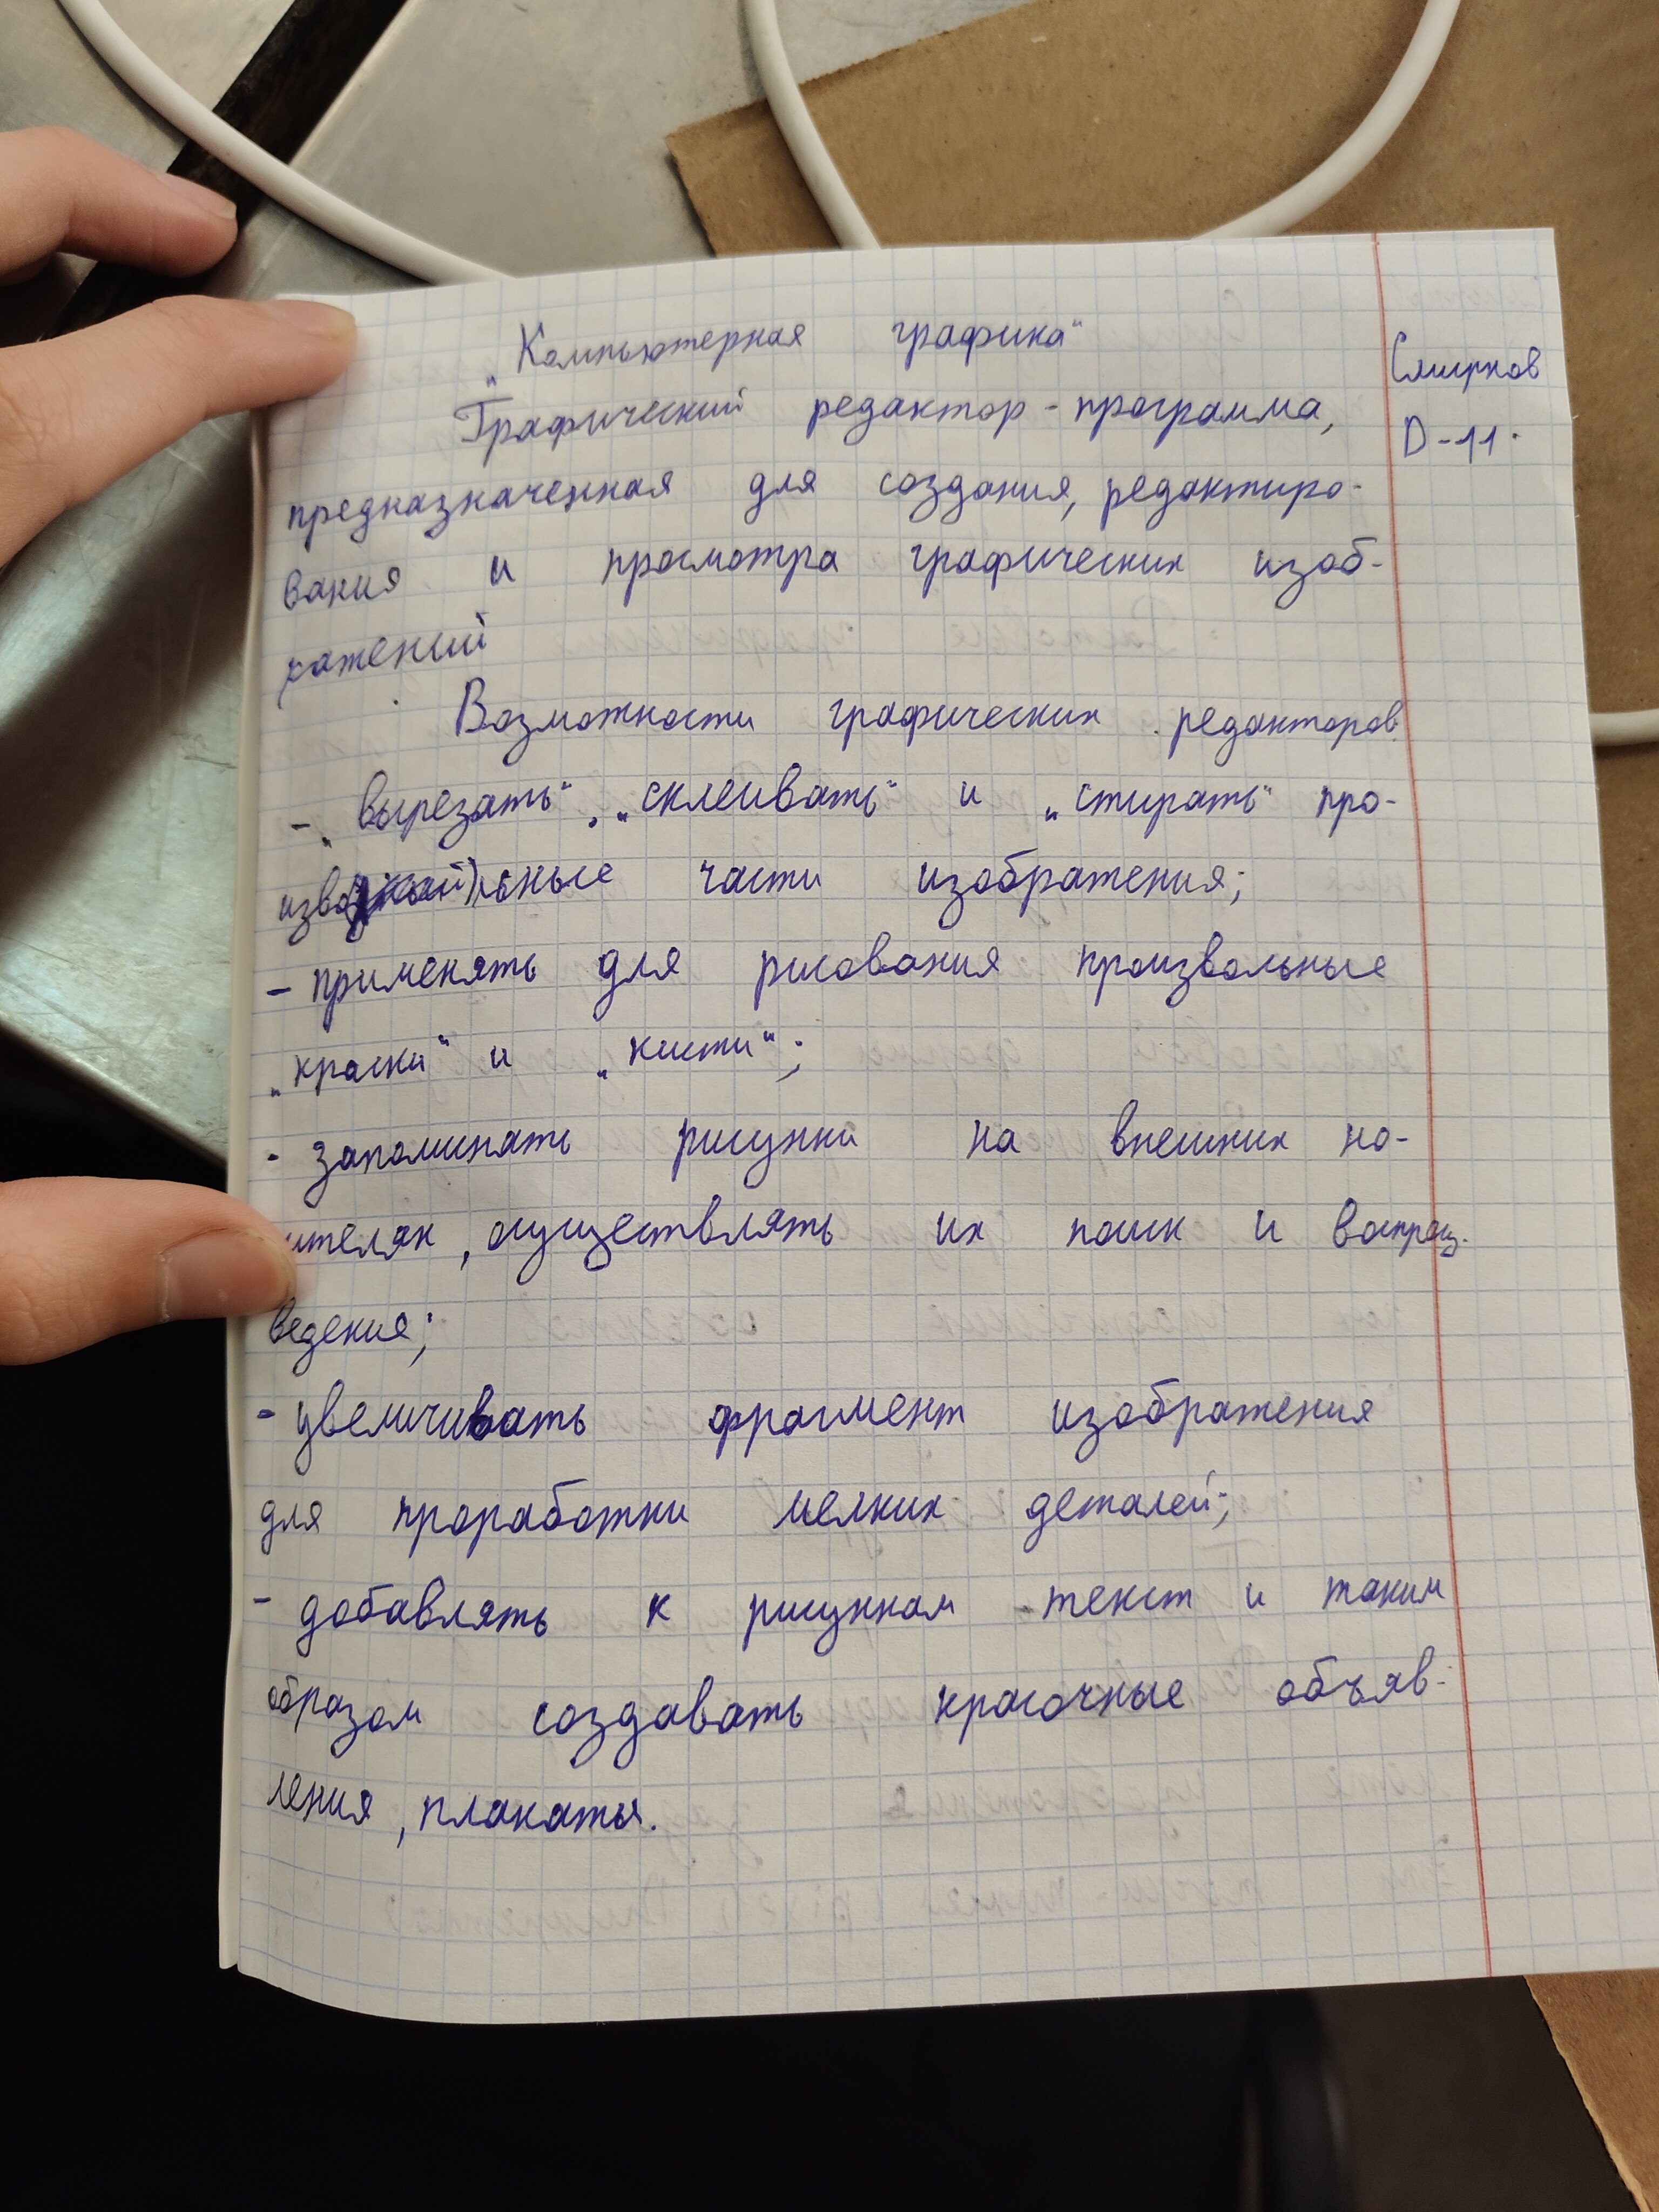 „Компьютерная графика“
Смирнов
D-11.
Графический редактор - программа,
предназначенная для создания, редактиро-
вания и просмотра графических изоб-
ражений
Возможности графических редакторов
- „вырезать“, „склеивать“ и „стирать“ про-
льные части изображения;
- применять для рисования произвольные
„краски“ и „кисти“;
- запоминать рисунки на внешних но-
сителях, осуществлять их поиск и
ведения;
- увеличивать фрагмент изображения
для проработки мелких деталей;
- добавлять к рисункам текст и таким
образом создавать красочные объяв-
ления, плакаты.